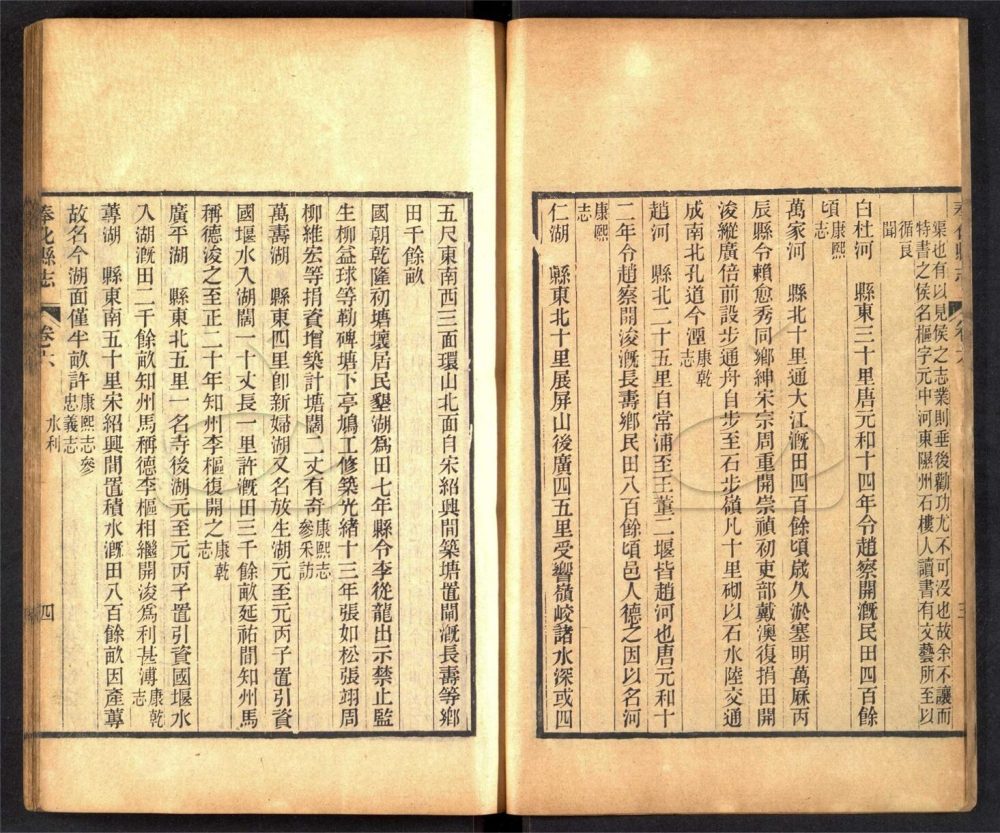 渠也有以見侯之志業則垂後勸功尤不可沒也故余不讓而
特書之侯名樞字元中河東隰州石樓人讀書有文藝所至以
循良
聞
白杜河　縣東三十里唐元和十四年令趙察開漑民田四百餘
頃康熙
志
萬家河　縣北十里通大江漑田四百餘頃歲久淤塞明萬厤丙
辰縣令賴愈秀同鄉紳宋宗周重開崇禎初吏部戴澳復捐田開
浚縱廣倍前設步通舟自步至石步嶺凡十里砌以石水陸交通
成南北孔道今湮康乾
志
趙河　縣北二十五里自常浦至王董二堰皆趙河也唐元和十
二年令趙察開浚漑長壽鄉民田八百餘頃邑人德之因以名河
康熙
志
仁湖　縣東北十里展屏山後廣四五里受響嶺峧諸水深或四
五尺東南西三面環山北面自宋紹興間築塘置閘漑長壽等鄉
田千餘畝
國朝乾隆初塘壞居民墾湖爲田七年縣令李從龍出示禁止監
生柳益球等勒碑塘下亭鳩工修築光緒十三年張如松張翊周
柳維宏等捐資增築計塘闊二丈有奇康熙志
參釆訪
萬壽湖　縣東四里卽新婦湖又名放生湖元至元丙子置引資
國堰水入湖闊一十丈長一里許漑田三千餘畝延祐間知州馬
稱德浚之至正二十年知州李樞復開之康乾
志
廣平湖　縣東北五里一名寺後湖元至元丙子置引資國堰水
入湖漑田二千餘畝知州馬稱德李樞相繼開浚爲利甚溥康乾
志
蓴湖　縣東南五十里宋紹興間置積水漑田八百餘畝因產蓴
故名今湖面僅半畝許康熙志參
忠義志
奉化縣志　卷六　水利　四